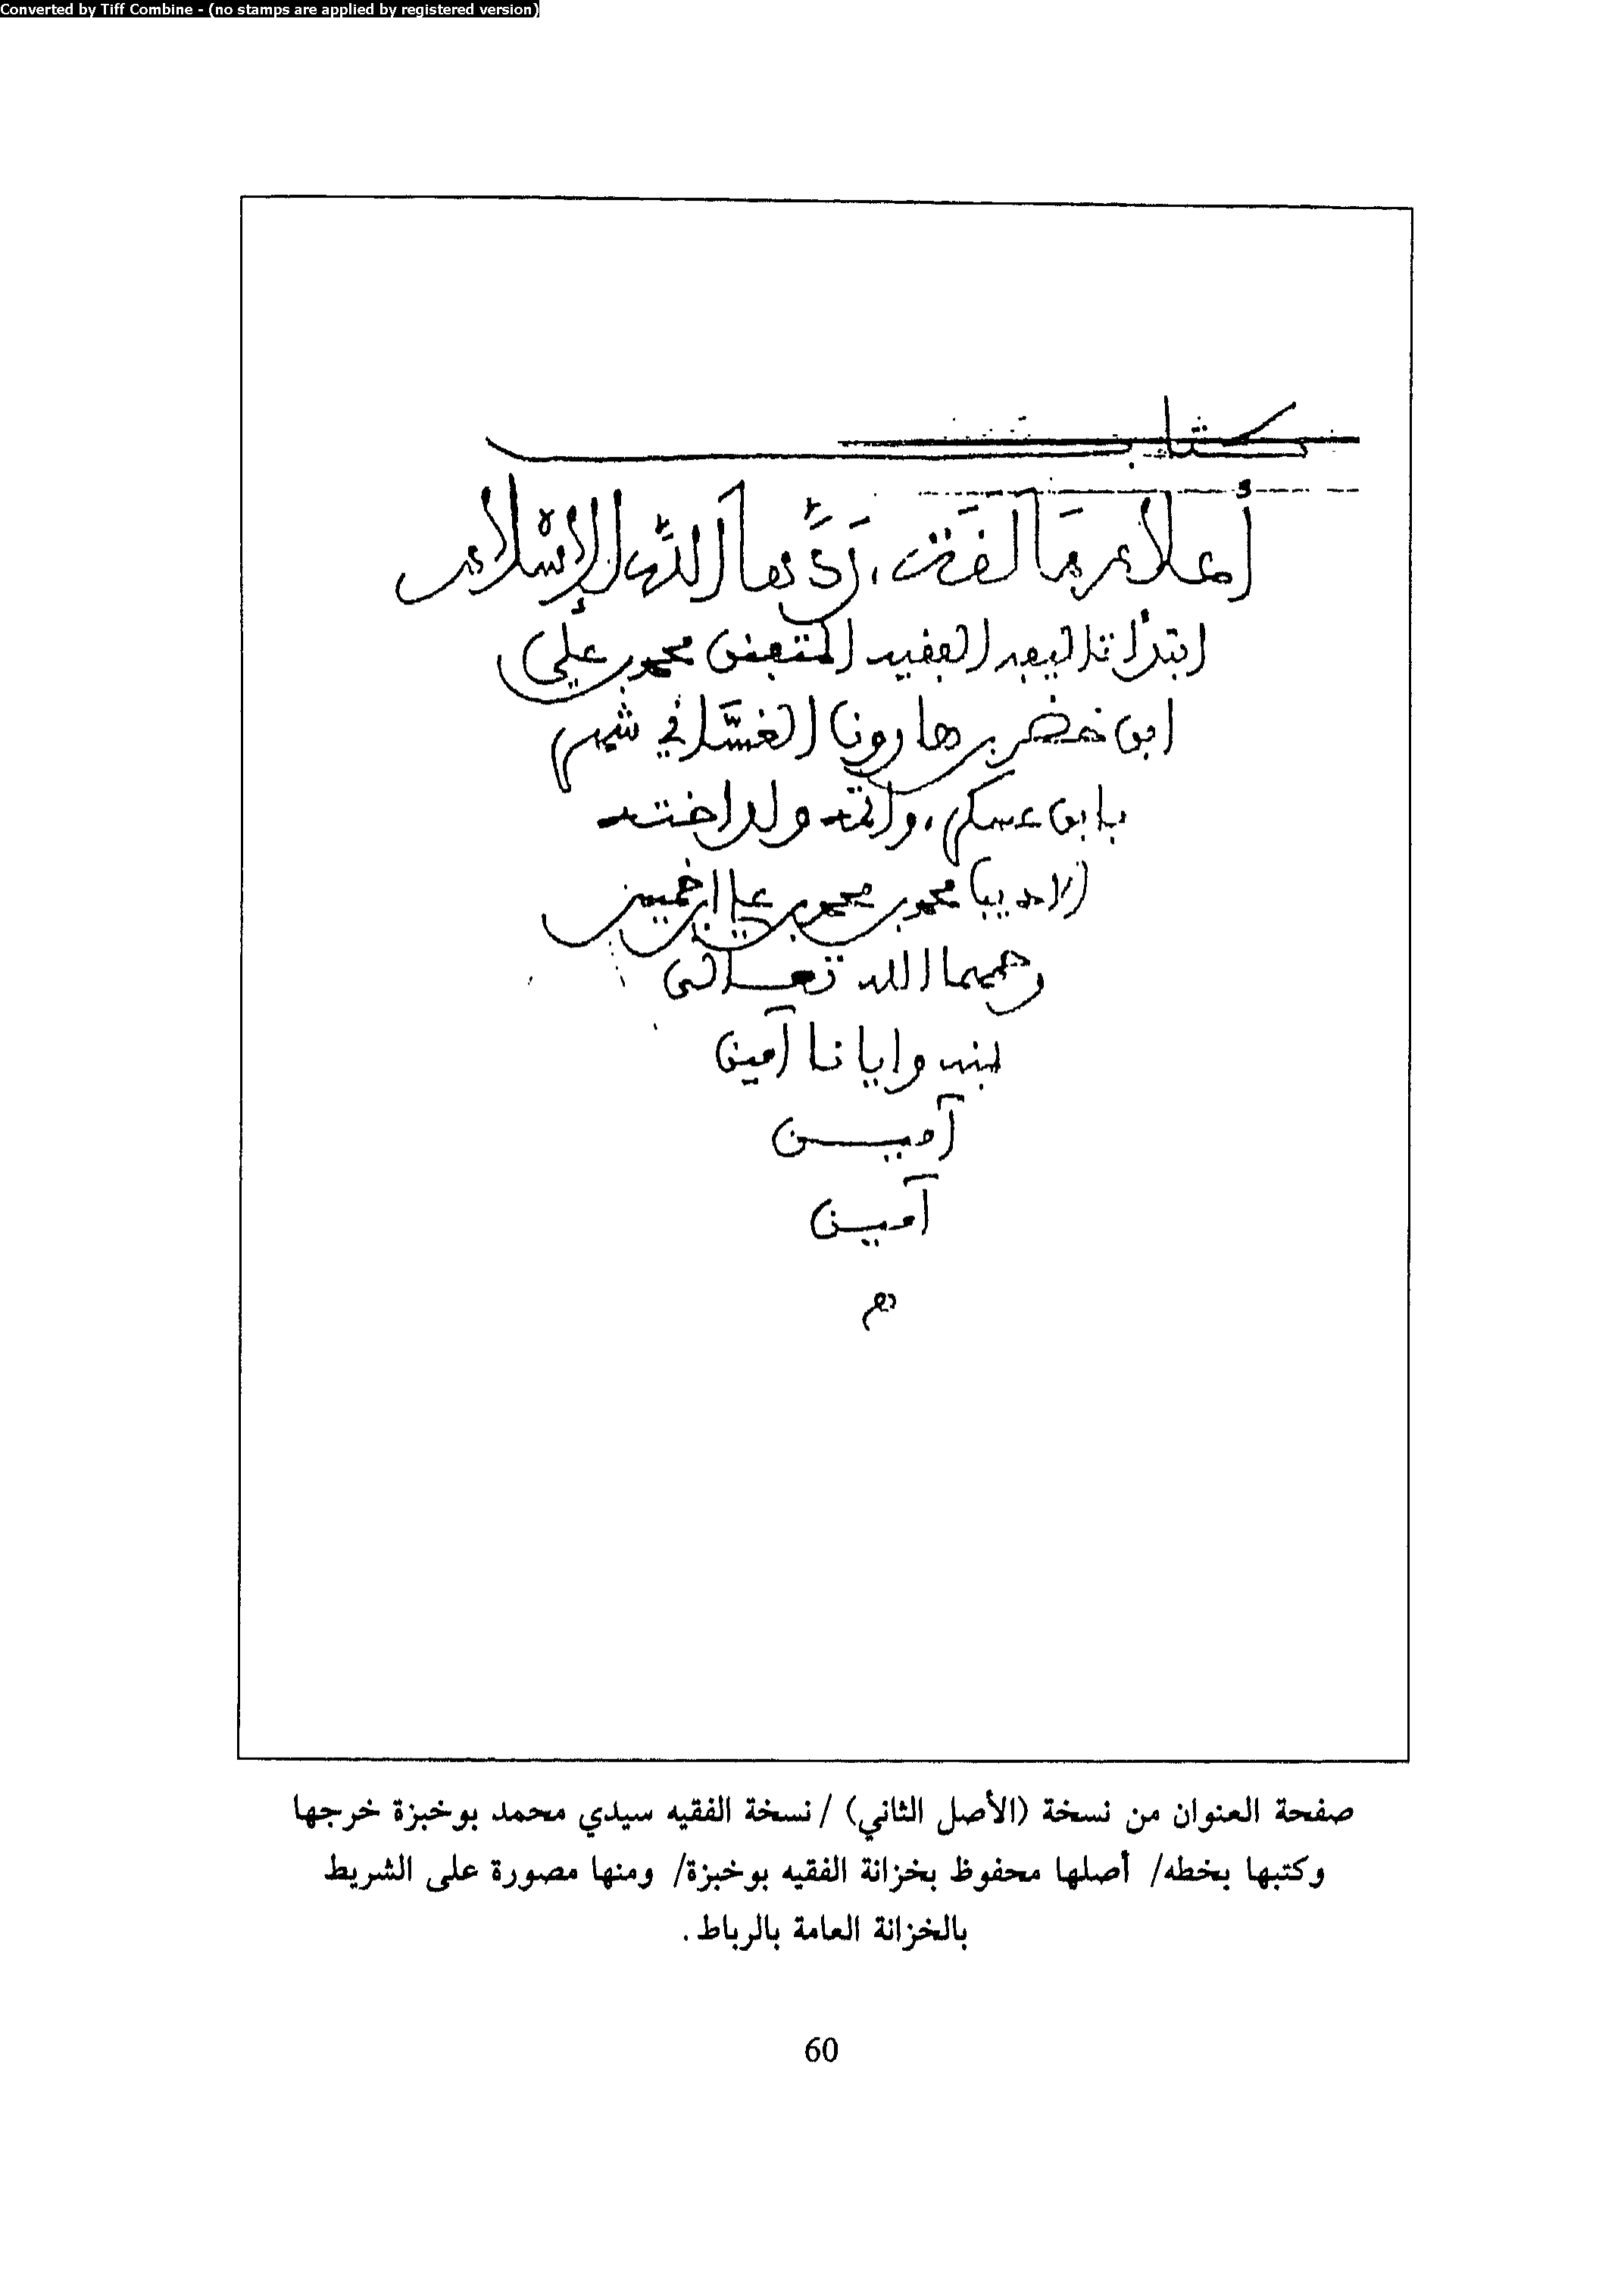 Converted by Tiff Combine - (no stamps are applied by registered version)
كتاب
أعلام مَالَقَة، رَدَّهَا اللَّهُ لِلإِسْلام
ابتدأ تاليفه الفقيه المتفنن محمد بن علي
ابن خضر بن هارون الغسَّاني شهر
بابن عسكر، وأتمه ولد اخته
الاديب محمد بن محمد بن علي ابن خميس
رحمهما الله تعالى
بمنه وإيانا آمين
آميـن
آميـن
صفحة العنوان من نسخة (الأصل الثاني) / نسخة الفقيه سيدي محمد بوخبزة خرجها
وكتبها بخطه/ أصلها محفوظ بخزانة الفقيه بوخبزة/ ومنها مصورة على الشريط
بالخزانة العامة بالرباط.
60